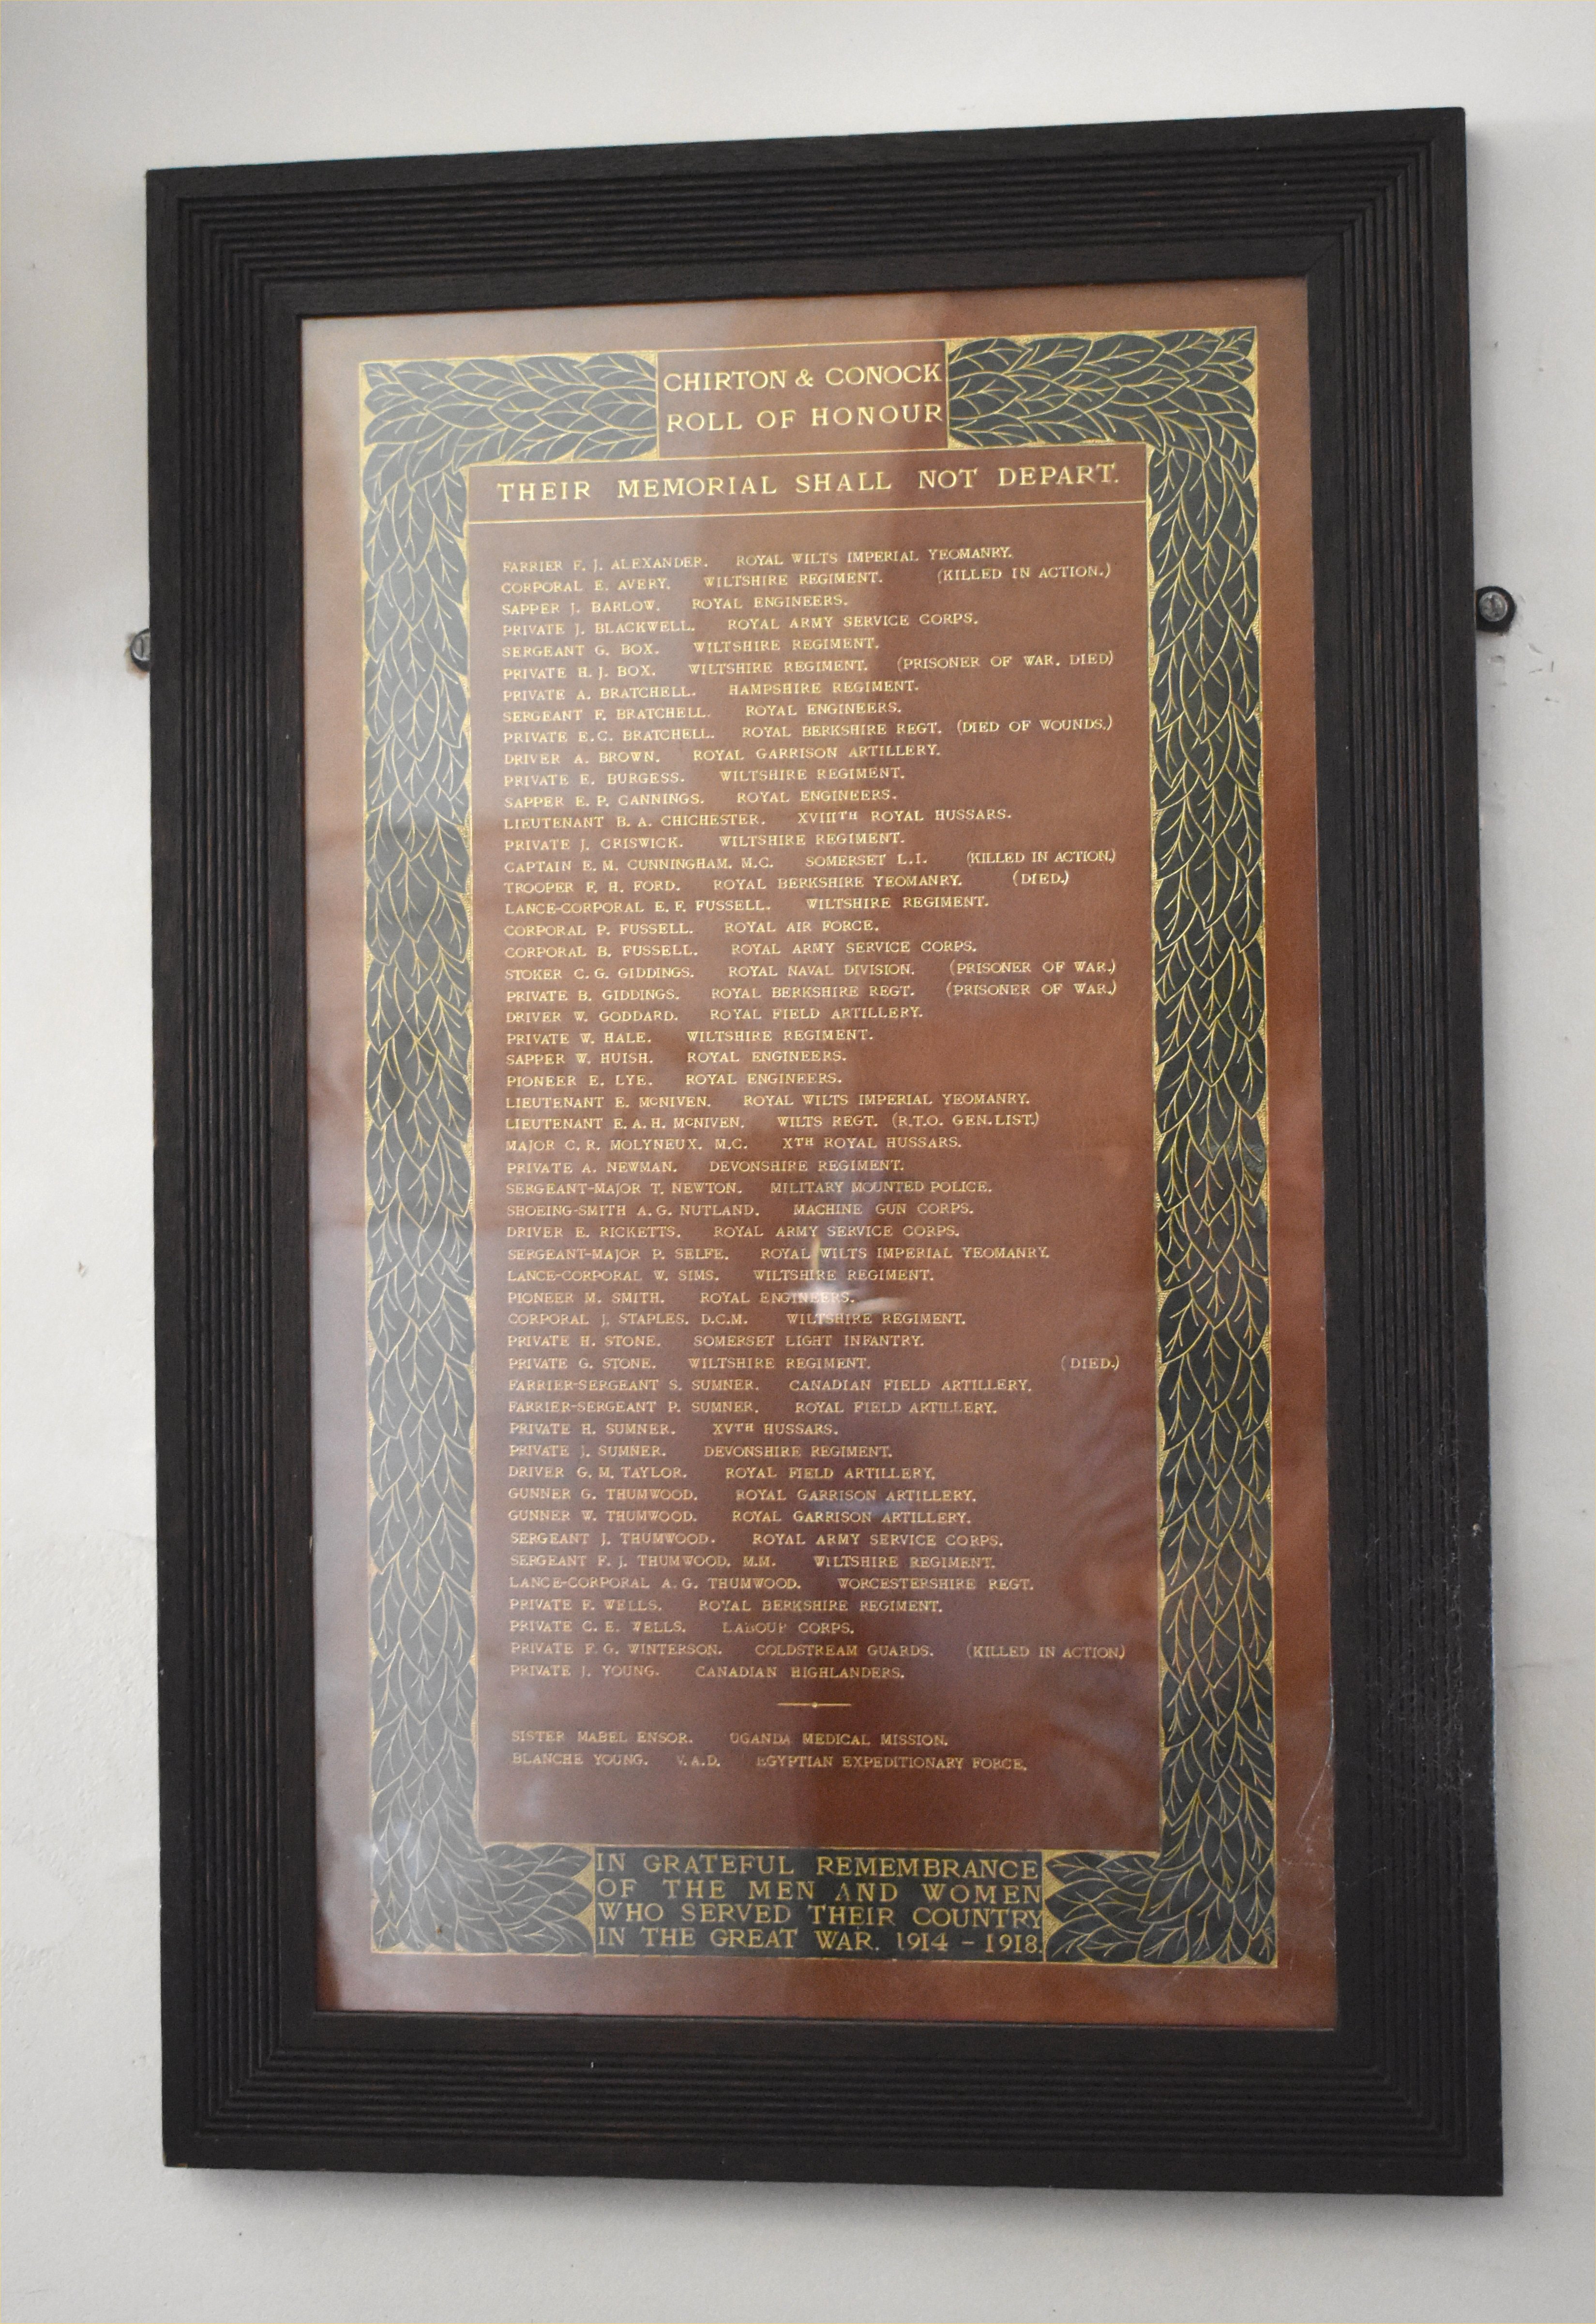 CHIRTON & CONOCK
ROLL OF HONOUR
THEIR MEMORIAL SHALL NOT DEPART.
FARRIER F. J. ALEXANDER. ROYAL WILTS IMPERIAL YEOMANRY.
CORPORAL E. AVERY. WILTSHIRE REGIMENT. (KILLED IN ACTION.)
SAPPER J. BARLOW. ROYAL ENGINEERS.
PRIVATE J. BLACKWELL. ROYAL ARMY SERVICE CORPS.
SERGEANT G. BOX. WILTSHIRE REGIMENT.
PRIVATE H. J. BOX. WILTSHIRE REGIMENT. (PRISONER OF WAR. DIED)
PRIVATE A. BRATCHELL. HAMPSHIRE REGIMENT.
SERGEANT F. BRATCHELL. ROYAL ENGINEERS.
PRIVATE E.C. BRATCHELL. ROYAL BERKSHIRE REGT. (DIED OF WOUNDS.)
DRIVER A. BROWN. ROYAL GARRISON ARTILLERY.
PRIVATE E. BURGESS. WILTSHIRE REGIMENT.
SAPPER E. P. CANNINGS. ROYAL ENGINEERS.
LIEUTENANT B. A. CHICHESTER. XVIIITH ROYAL HUSSARS.
PRIVATE J. CRISWICK. WILTSHIRE REGIMENT.
CAPTAIN E. M. CUNNINGHAM. M.C. SOMERSET L.I. (KILLED IN ACTION.)
TROOPER F. H. FORD. ROYAL BERKSHIRE YEOMANRY. (DIED.)
LANCE-CORPORAL E. F. FUSSELL. WILTSHIRE REGIMENT.
CORPORAL P. FUSSELL. ROYAL AIR FORCE.
CORPORAL B. FUSSELL. ROYAL ARMY SERVICE CORPS.
STOKER C. G. GIDDINGS. ROYAL NAVAL DIVISION. (PRISONER OF WAR.)
PRIVATE B. GIDDINGS. ROYAL BERKSHIRE REGT. (PRISONER OF WAR.)
DRIVER W. GODDARD. ROYAL FIELD ARTILLERY.
PRIVATE W. HALE. WILTSHIRE REGIMENT.
SAPPER W. HUISH. ROYAL ENGINEERS.
PIONEER E. LYE. ROYAL ENGINEERS.
LIEUTENANT E. McNIVEN. ROYAL WILTS IMPERIAL YEOMANRY.
LIEUTENANT E. A. H. McNIVEN. WILTS REGT. (R.T.O. GEN. LIST.)
MAJOR C. R. MOLYNEUX. M.C. XTH ROYAL HUSSARS.
PRIVATE A. NEWMAN. DEVONSHIRE REGIMENT.
SERGEANT-MAJOR T. NEWTON. MILITARY MOUNTED POLICE.
SHOEING-SMITH A. G. NUTLAND. MACHINE GUN CORPS.
DRIVER E. RICKETTS. ROYAL ARMY SERVICE CORPS.
SERGEANT-MAJOR P. SELFE. ROYAL WILTS IMPERIAL YEOMANRY.
LANCE-CORPORAL W. SIMS. WILTSHIRE REGIMENT.
PIONEER M. SMITH. ROYAL ENGINEERS.
CORPORAL J. STAPLES. D.C.M. WILTSHIRE REGIMENT.
PRIVATE H. STONE. SOMERSET LIGHT INFANTRY.
PRIVATE G. STONE. WILTSHIRE REGIMENT. (DIED.)
FARRIER-SERGEANT S. SUMNER. CANADIAN FIELD ARTILLERY.
FARRIER-SERGEANT P. SUMNER. ROYAL FIELD ARTILLERY.
PRIVATE H. SUMNER. XVTH HUSSARS.
PRIVATE J. SUMNER. DEVONSHIRE REGIMENT.
DRIVER G. M. TAYLOR. ROYAL FIELD ARTILLERY.
GUNNER G. THUMWOOD. ROYAL GARRISON ARTILLERY.
GUNNER W. THUMWOOD. ROYAL GARRISON ARTILLERY.
SERGEANT J. THUMWOOD. ROYAL ARMY SERVICE CORPS.
SERGEANT F. J. THUMWOOD. M.M. WILTSHIRE REGIMENT.
LANCE-CORPORAL A. G. THUMWOOD. WORCESTERSHIRE REGT.
PRIVATE F. WELLS. ROYAL BERKSHIRE REGIMENT.
PRIVATE C. E. WELLS. LABOUR CORPS.
PRIVATE F. G. WINTERSON. COLDSTREAM GUARDS. (KILLED IN ACTION)
PRIVATE J. YOUNG. CANADIAN HIGHLANDERS.
SISTER MABEL ENSOR. UGANDA MEDICAL MISSION.
BLANCHE YOUNG. V.A.D. EGYPTIAN EXPEDITIONARY FORCE.
IN GRATEFUL REMEMBRANCE
OF THE MEN AND WOMEN
WHO SERVED THEIR COUNTRY
IN THE GREAT WAR. 1914 - 1918.